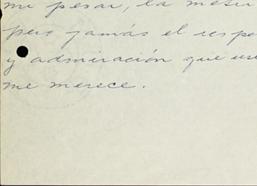 mi pesar, la mesu
pero jamás el respe
y admiración que us
me merece.